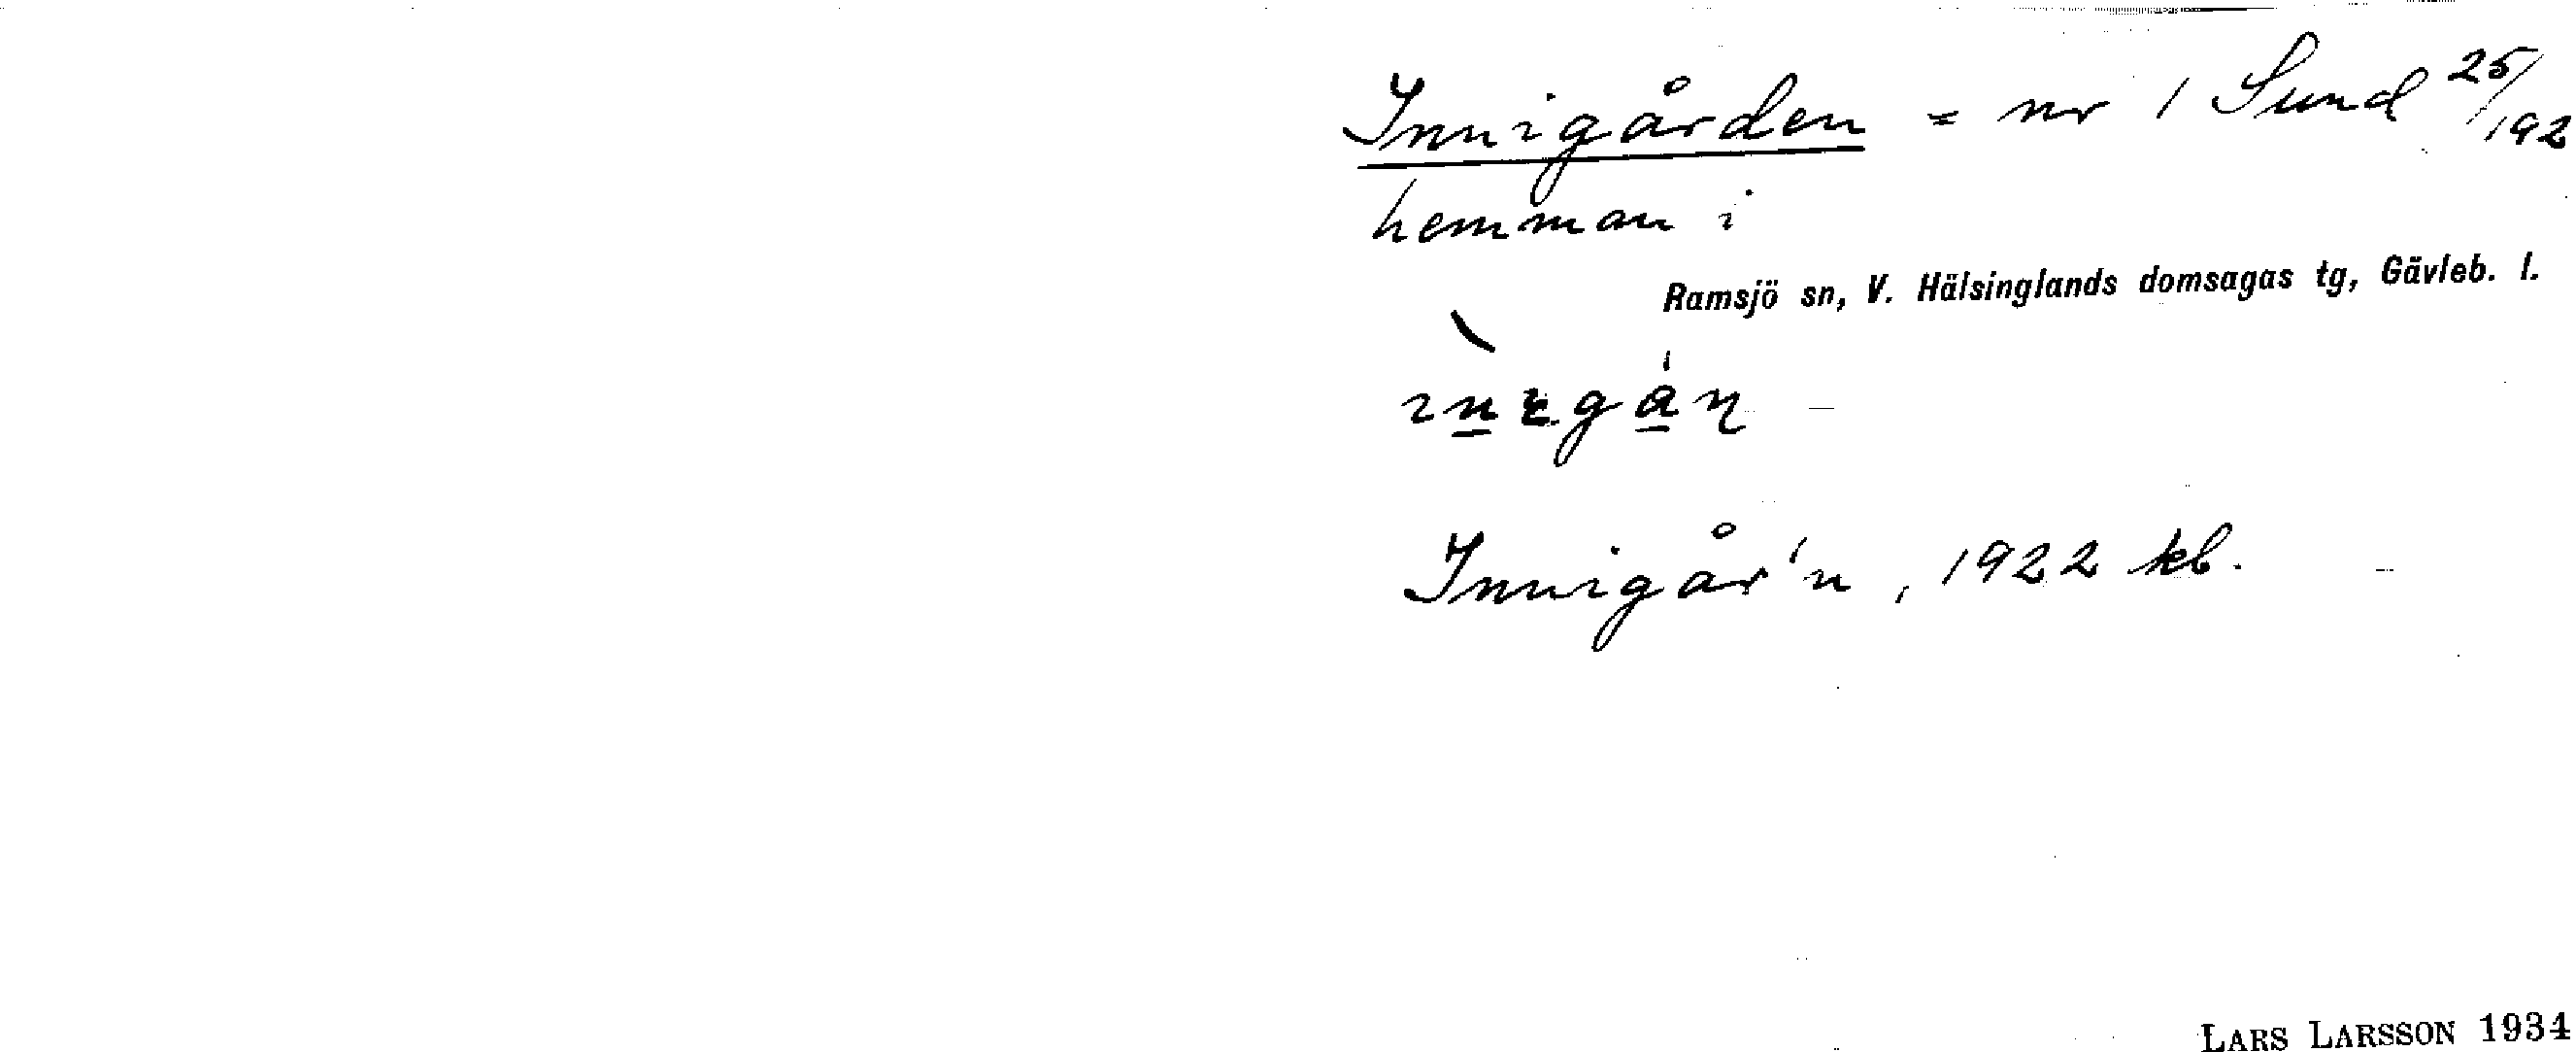 Innigården = nr 1 Sund 25/192
hemman i
Ramsjö sn, V. Hälsinglands domsagas tg, Gävleb. l.
Innigår'n, 1922 kb.
LARS LARSSON 1934